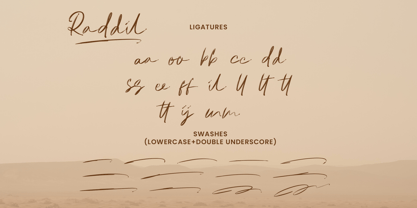 Raddil
LIGATURES
aa oo bb cc dd
ss ee ff il ll lt tl
tt ij unm
SWASHES
(LOWERCASE+DOUBLE UNDERSCORE)